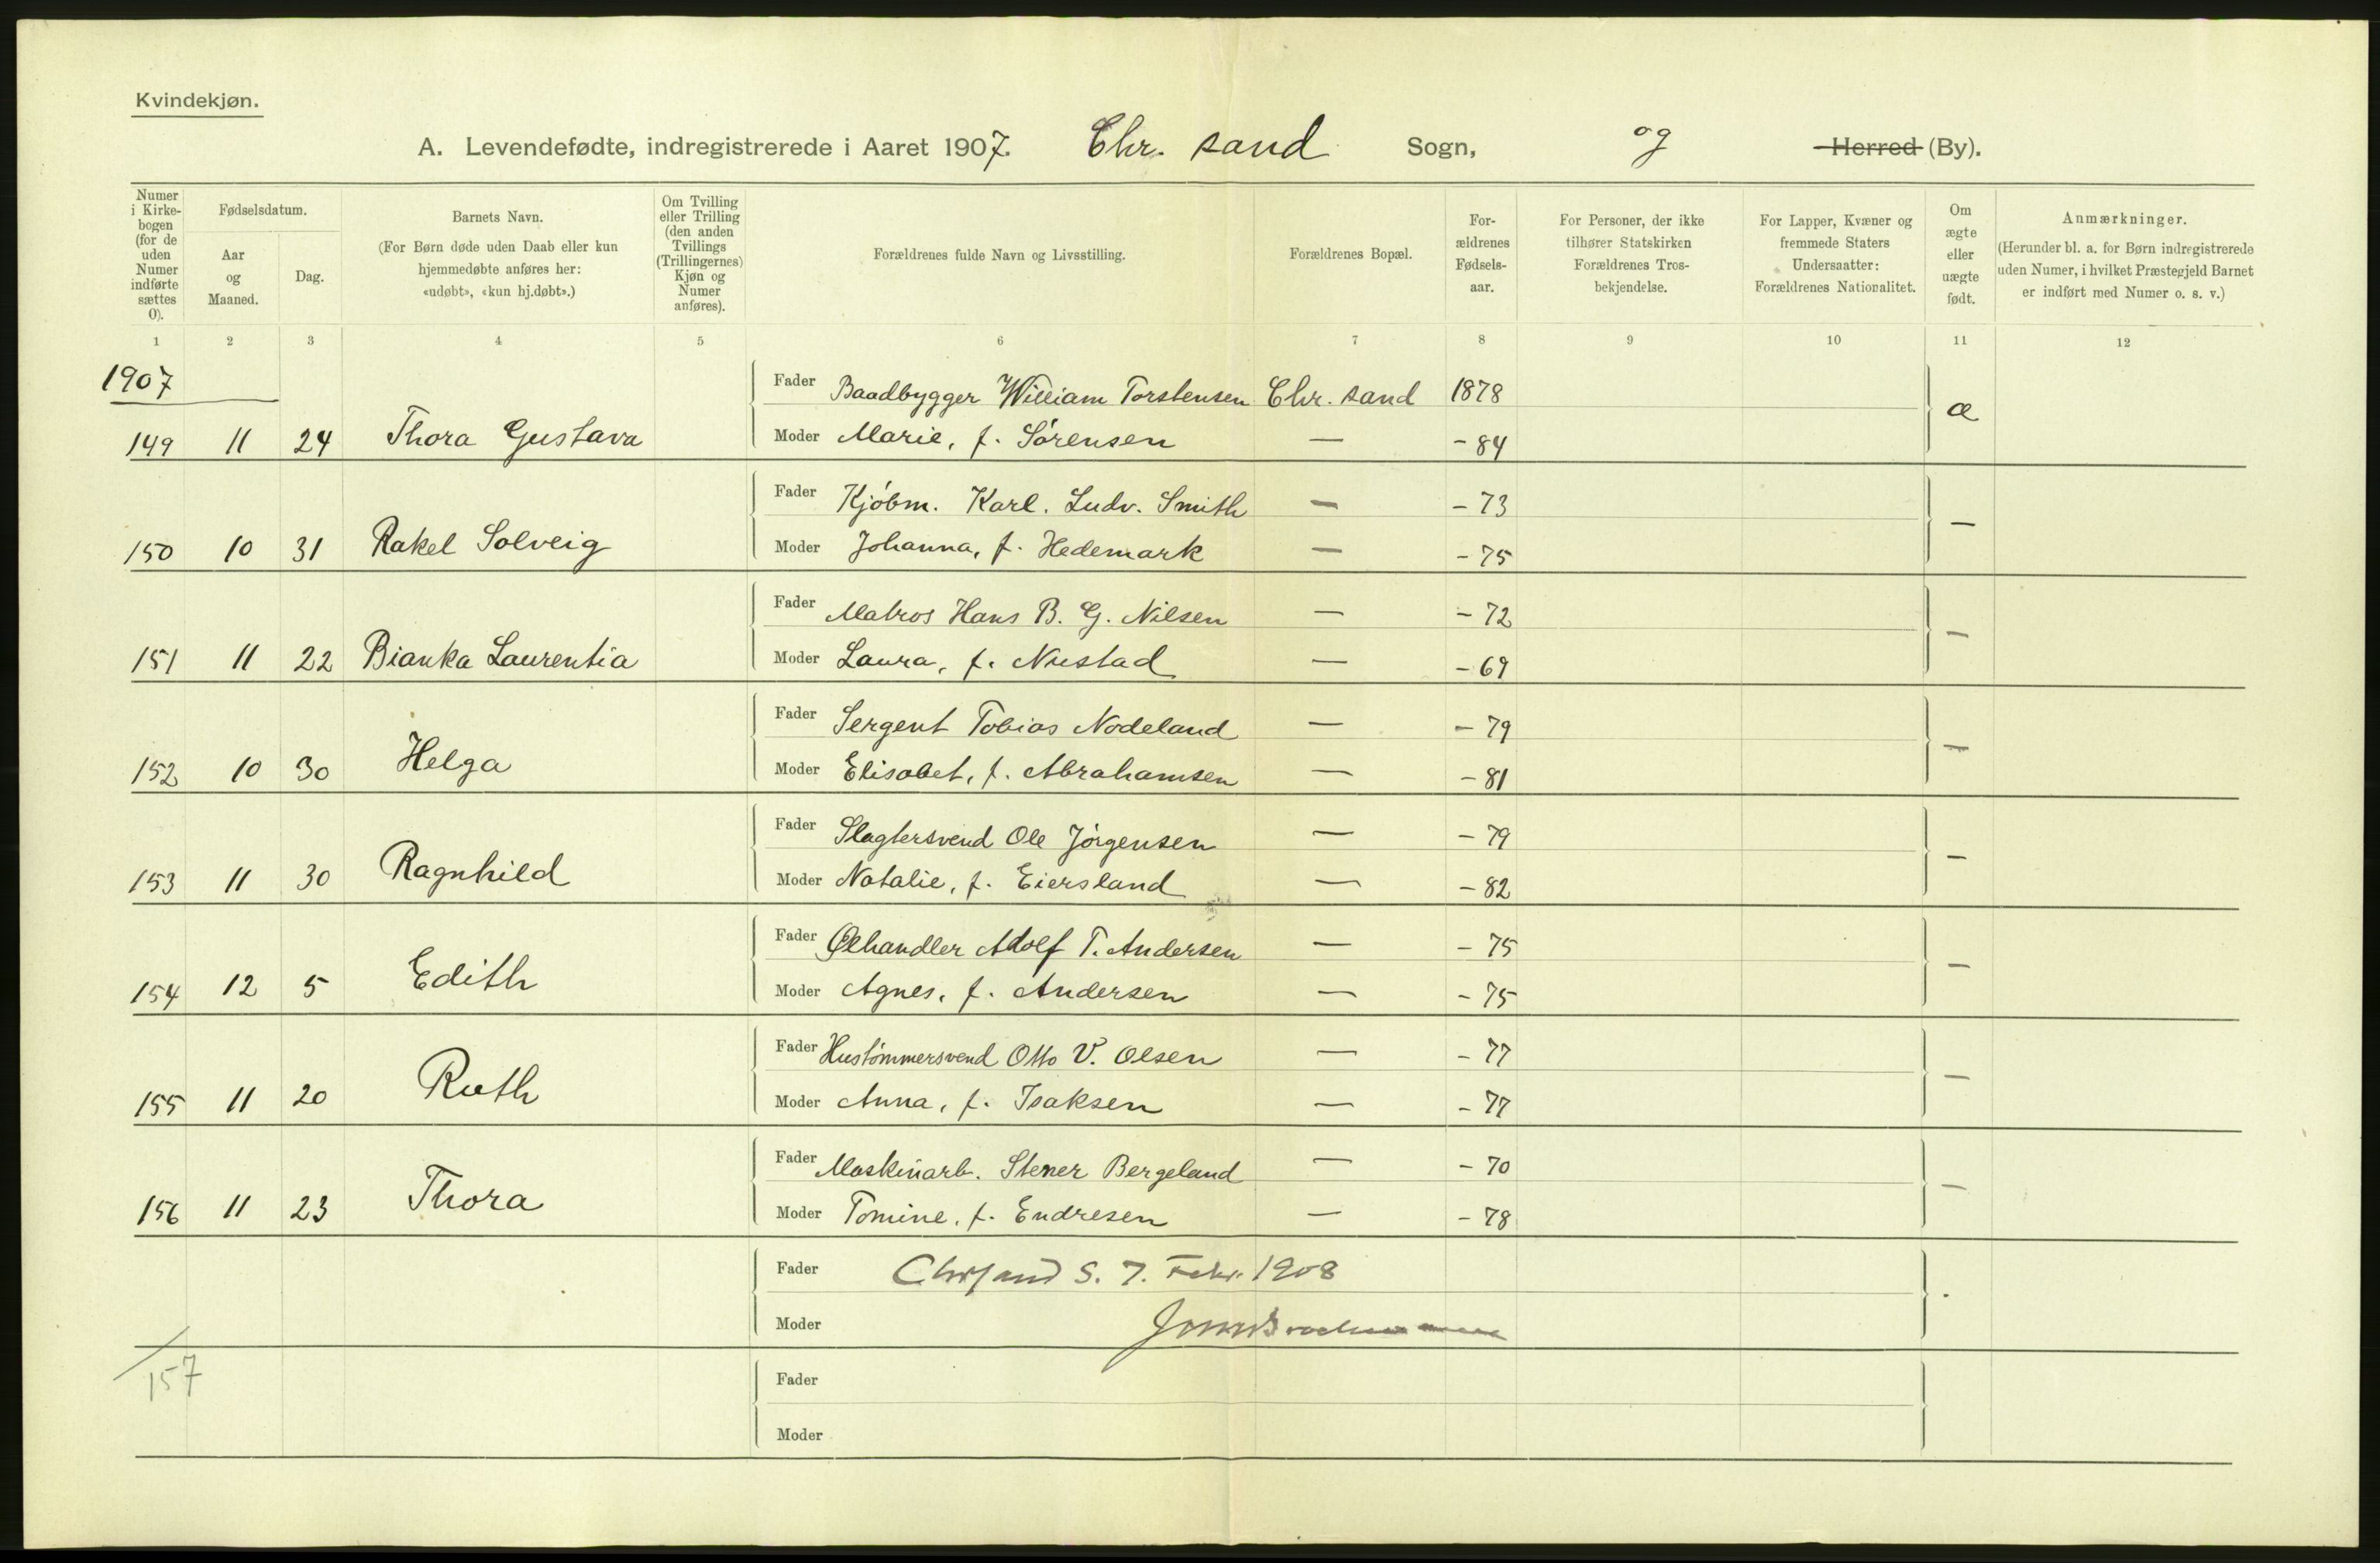 Kvindekjøn.
A. Levendefødte, indregistrerede i Aaret 1907. Chr. sand Sogn, og Herred (By).
Numer i Kirkebogen (for de uden Numer indførte sættes 0).
Fødselsdatum.
Aar og Maaned.
Dag.
Barnets Navn.
(For Børn døde uden Daab eller kun hjemmedøbte anføres her: «udøbt», «kun hj.døbt».)
Om Tvilling eller Trilling (den anden Tvillings (Trillingernes) Kjøn og Numer anføres).
Forældrenes fulde Navn og Livsstilling.
Forældrenes Bopæl.
For-ældrenes Fødsels-aar.
For Personer, der ikke tilhører Statskirken Forældrenes Tros-bekjendelse.
For Lapper, Kvæner og fremmede Staters Undersaatter: Forældrenes Nationalitet.
Om ægte eller uægte født.
Anmærkninger.
(Herunder bl. a. for Børn indregistrerede uden Numer, i hvilket Præstegjeld Barnet er indført med Numer o. s. v.)
1 2 3 4 5 6 7 8 9 10 11 12
1907
Fader Baadbygger William Torstensen Chr. sand 1878 æ
149 11 24 Thora Gustava Moder Marie, f. Sørensen — - 84
Fader Kjøbm. Karl. Ludv. Smith — - 73 —
150 10 31 Rakel Solveig Moder Johanna, f. Hedemark — - 75
Fader Matros Hans B. G. Nilsen — - 72 —
151 11 22 Bianka Laurentia Moder Laura, f. Nustad — - 69
Fader Sergent Tobias Nodeland — - 79 —
152 10 30 Helga Moder Elisabet, f. Abrahamsen — - 81
Fader Slagtersvend Ole Jørgensen — - 79 —
153 11 30 Ragnhild Moder Natalie, f. Eiersland — - 82
Fader Ølhandler Adolf T. Andersen — - 75 —
154 12 5 Edith Moder Agnes, f. Andersen — - 75
Fader Hustømmersvend Otto V. Olsen — - 77 —
155 11 20 Ruth Moder Anna, f. Isaksen — - 77
Fader Maskinarb. Stener Bergeland — - 70 —
156 11 23 Thora Moder Tomine, f. Endresen — - 78
Fader Chrsand S. 7. Febr. 1908
Moder
157 Fader
Moder